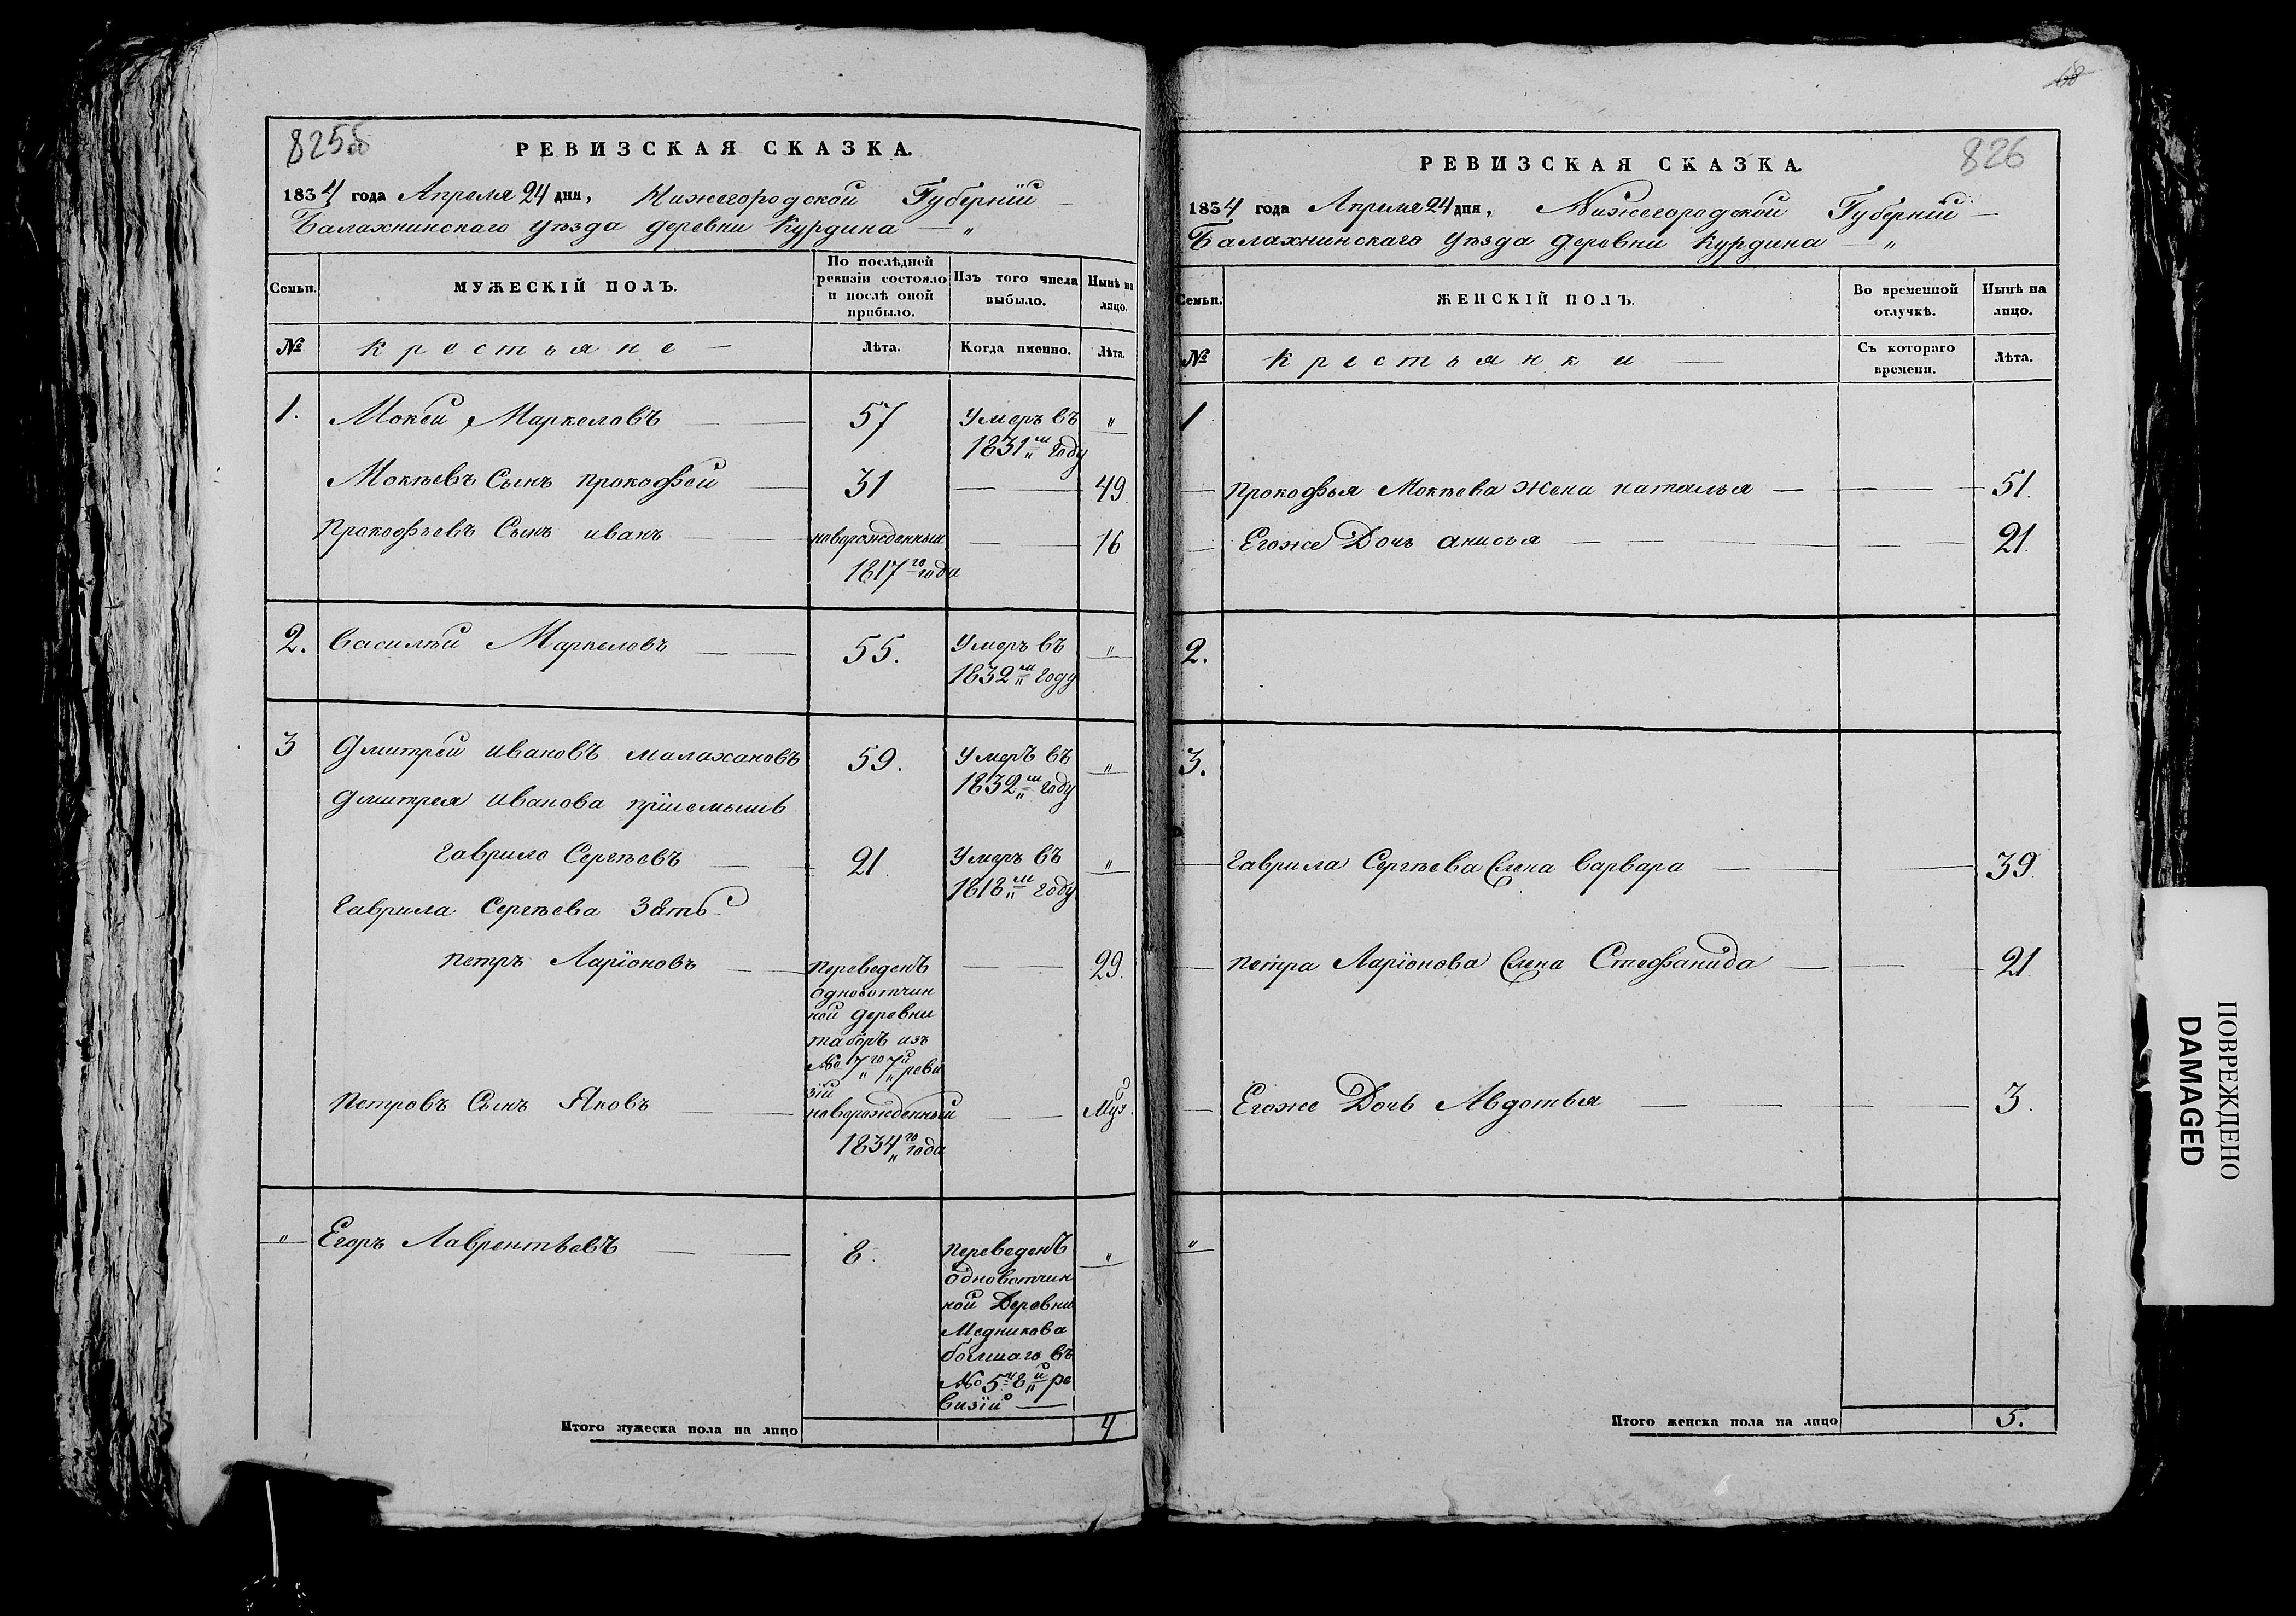 825об
РЕВИЗСКАЯ СКАЗКА.
1834 года Апреля 24 дня, Нижегородской Губернїи
Балахнинскаго уѣзда деревни Курдина — "
Семьи.
МУЖЕСКІЙ ПОЛЪ.
По послѣдней ревизіи состояло и послѣ оной прибыло.
Изъ того числа выбыло.
Нынѣ на лицо.
№
Крестьяне —
Лѣта.
Когда именно.
Лѣта.
1. Мокей Маркеловъ — 57 Умеръ въ "
1831м году
Мокѣевъ Сынъ прокофей — 31 — 49.
Прокофьевъ Сынъ иванъ — новорожденный — 16
1817го года
2. Василѣй Маркеловъ — 55. Умеръ въ "
1832м году
3 Дмитрей ивановъ малахановъ 59. Умеръ въ "
1832м году
Дмитрея иванова прїиемышъ
гаврило Сергѣевъ — 21. Умеръ въ "
1818м году
Гаврила Сергѣева Зять
петръ Ларїоновъ — переведенъ — 29.
одновотчин
ной деревни
таборъ изъ
№ 7го 7й реви
зїи
Петровъ Сынъ Яковъ — новорожденный —
1834го года
" Егоръ Лаврентьевъ — 8. переведенъ "
одновотчин
ной Деревни
Медникова
болшаго въ
№ 5й 8й ре
визїи —
Итого мужеска пола на лицо 4
68
826
РЕВИЗСКАЯ СКАЗКА.
1834 года Апреля 24 дня, Нижегородской Губернїи —
Балахнинскаго уѣзда деревни Курдина — "
Семьи.
ЖЕНСКІЙ ПОЛЪ.
Во временной отлучкѣ.
Нынѣ на лицо.
№
Крестьянки —
Съ котораго времени.
Лѣта.
1
— прокофья Мокѣева Жена наталья — 51.
— Егоже Дочь анисья — 21.
2.
3.
— гаврила Сергѣева Жена варвара — 39.
— петра Ларїонова Жена Стефанида — 21
— Егоже Дочь Авдотья — 3.
"
Итого женска пола на лицо 5.
ПОВРЕЖДЕНО
DAMAGED